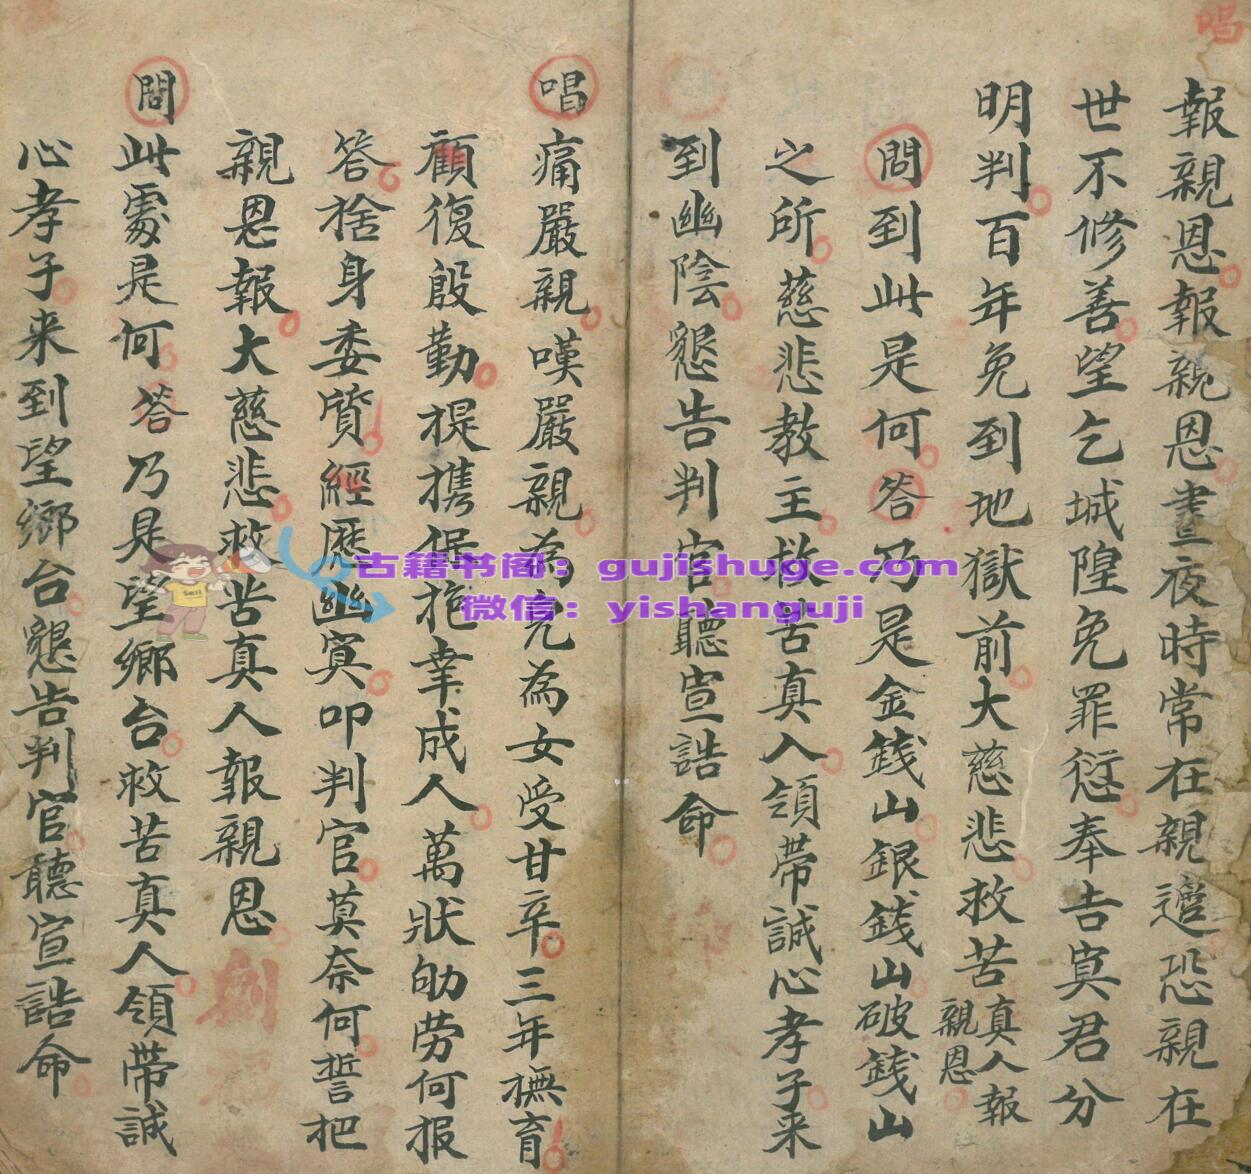 唱
報親恩報親恩晝夜時常在親邉恐親在
世不修善望乞城隍免罪愆奉告冥君分
明判百年免到地獄前大慈悲救苦真人報親恩
問到此是何答乃是金錢山銀錢山破錢山
之所慈悲教主救苦真人領帶誠心孝子来
到幽陰懇告判官聽宣誥命
唱痛嚴親嘆嚴親為兒為女受甘辛三年撫育
顧復殷勤提携保抱幸成人萬狀劬劳何报
答捨身委質經歷幽冥叩判官莫奈何誓把
親恩報大慈悲救苦真人報親恩
問此處是何答乃是望鄉台救苦真人領帶誠
心孝子来到望鄉台懇告判官聽宣誥命
古籍书阁：gujishuge.com
微信：yishanguji